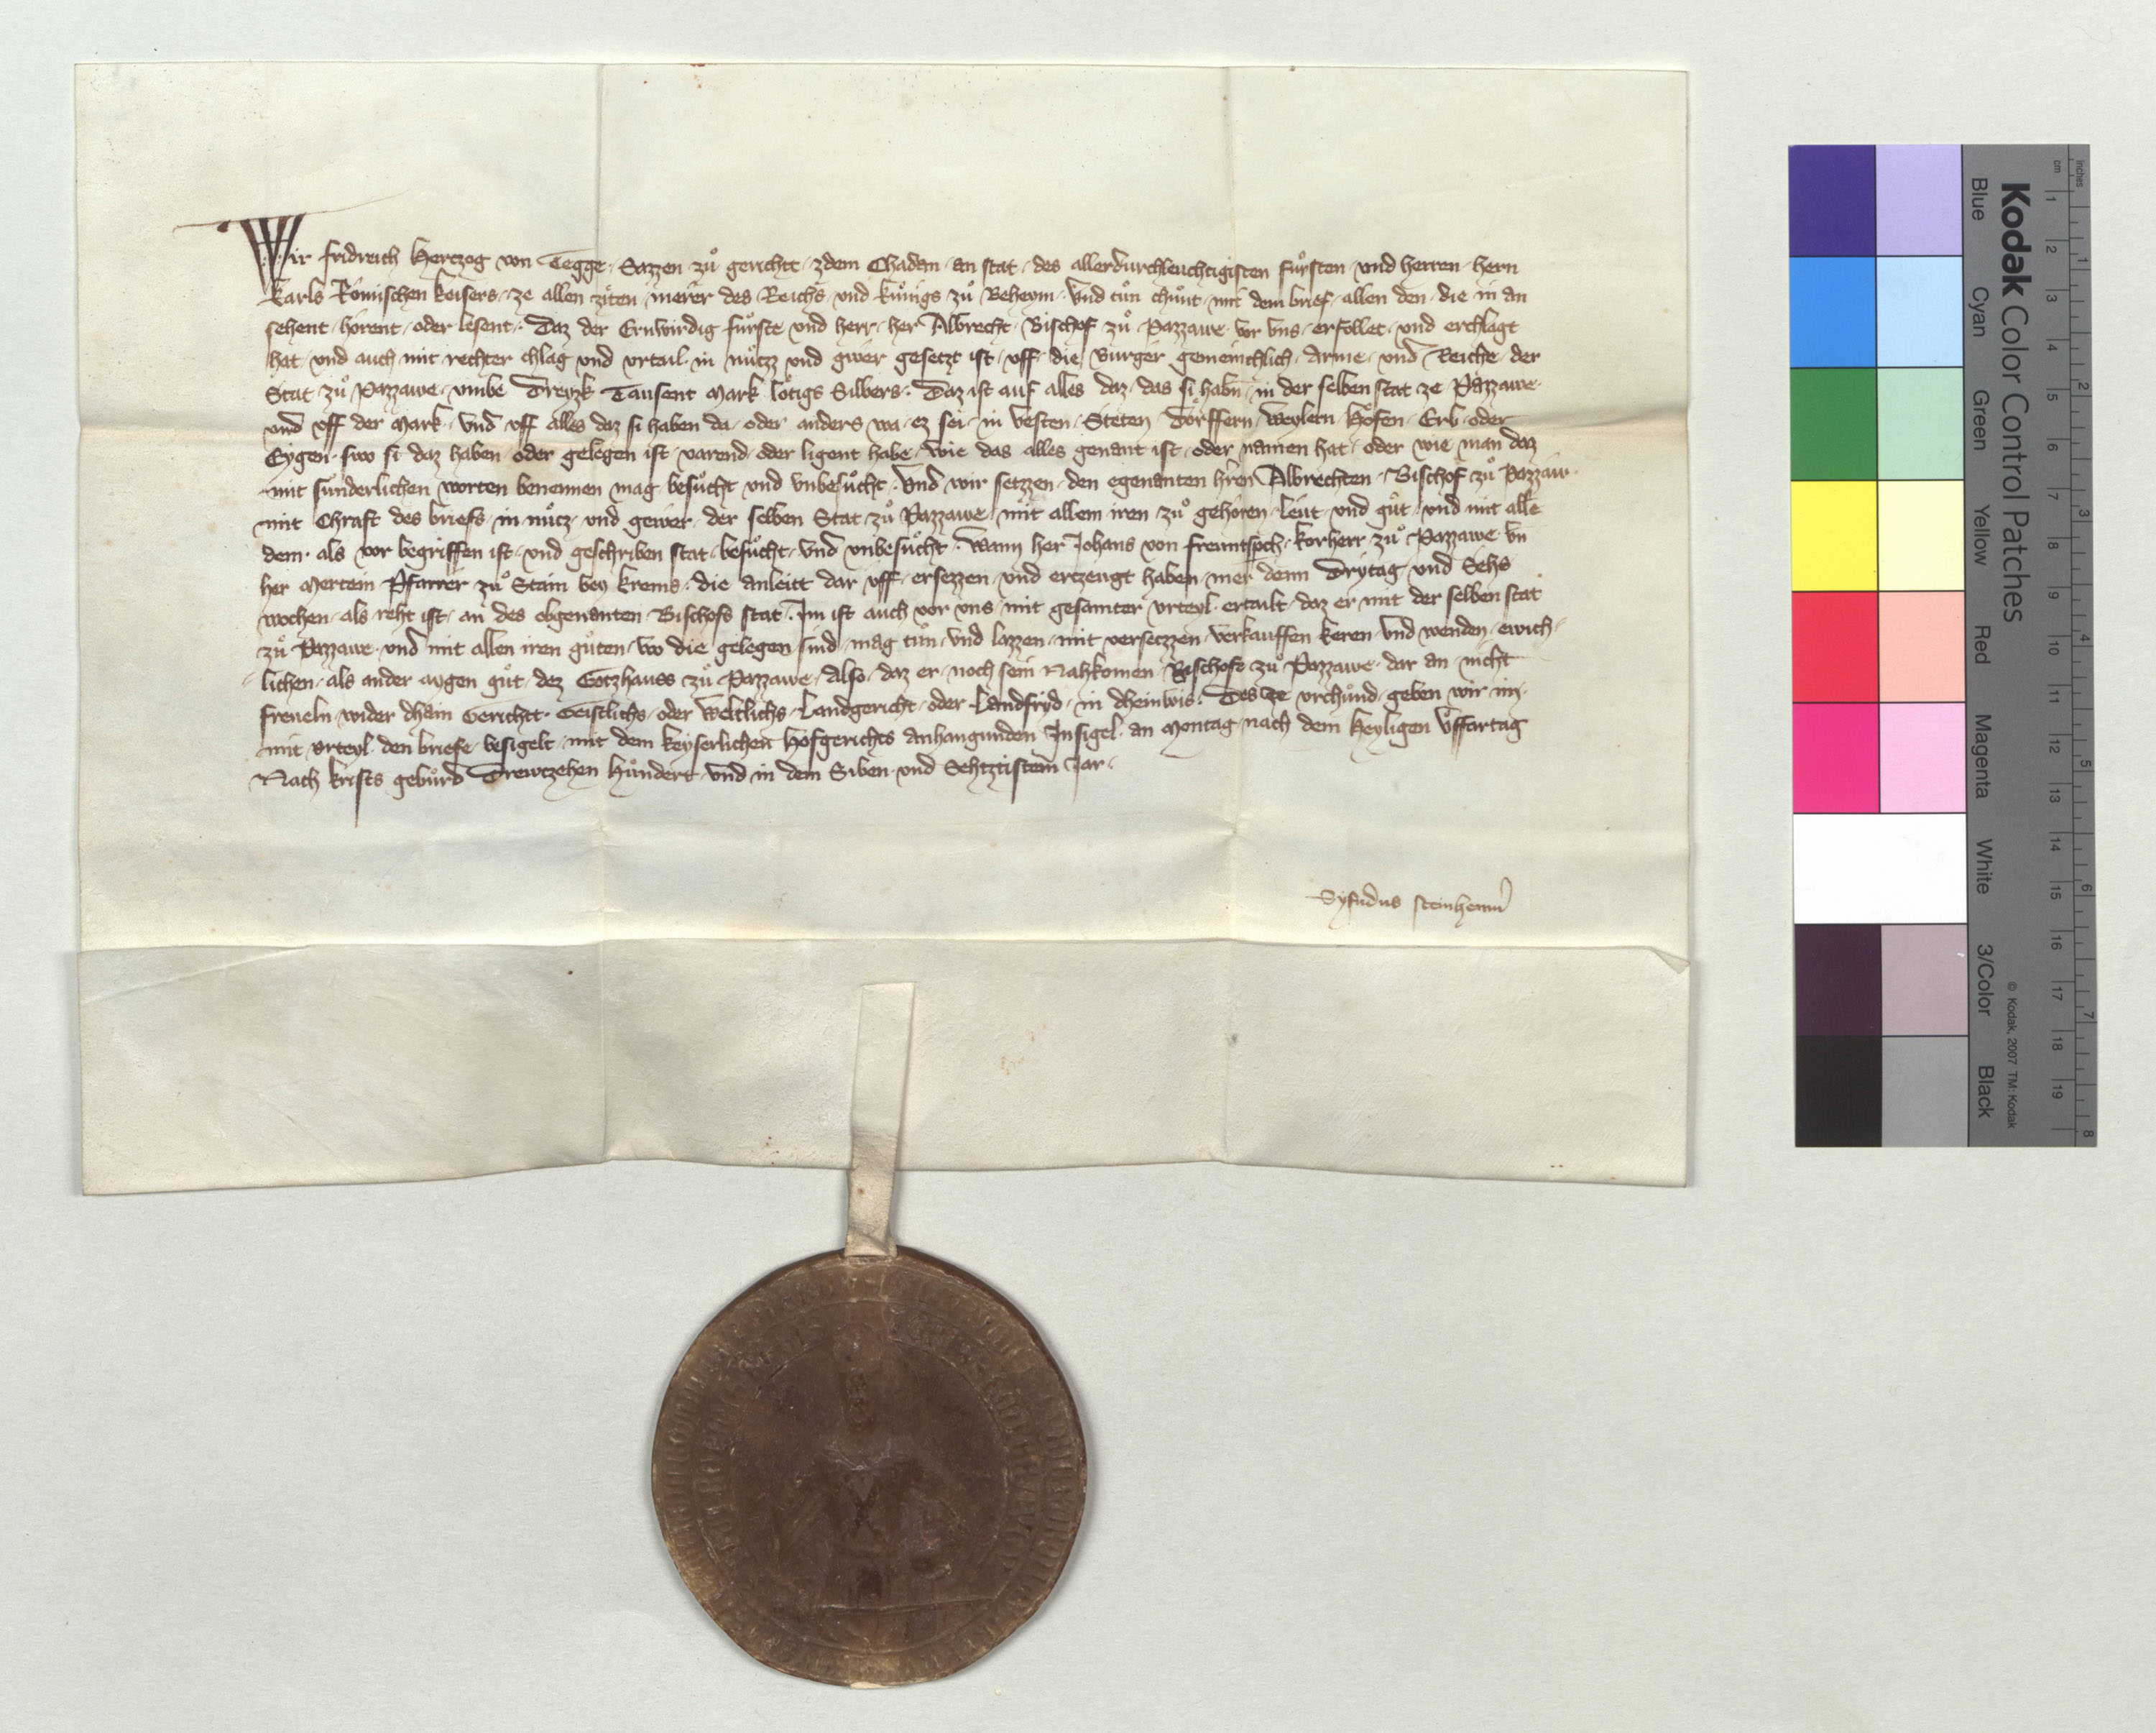 Wir fridreich Hertzog von Tegge · Sazzen zuͦ gerichte · zdem Chadan · an stat · des allerdurchleuchtigisten fuͦrsten · vnd herren · hern
Karls Römischen keisers · ze allen ziten · merer des Reichs · vnd kuͦnigs zuͦ Beheym · Vnd tuͦn chuͦnt · mit dem brief · allen den · die in an
sehent · hörent · oder lesent · Daz der Erwirdig fuͦrste vnd herr · her Albrecht · Bischof zuͦ Pazzawe · vor vns · erfollet · vnd erchlagt
hat vnd auch mit rechter chlag vnd vrtail · in nuͦtzz vnd gwer gesetzt ist · vff · die Burger gemeinchlich · Arme · vnd Reiche · der
Stat zuͦ Pazzawe · vmbe Dreyzk Tausent Mark lötigs Silbers · Daz ist auf alles daz · das si habn · in der selben stat ze Pazzawe ·
vnd vff der Mark · Vnd vff alles daz si haben da · oder anders wa · ez sei · in vesten · Steten Dörffern · Weylern · Höfen · Erb · oder
Eygen · swo si daz haben oder gelegen ist · varend · oder ligent habe · wie das alles genant ist · oder namen hat · oder wie man daz
mit suͦnderlichen worten benennen mag besuͦcht vnd vnbesuͦcht · Vnd wir setzzen · den egenanten hren Albrechten · Bischof zuͦ Pazzaw
mit Chraft des briefs · in nuͦtz · vnd gewer · der selben Stat zuͦ Pazzawe mit allem iren zuͦ gehören · leut · vnd guͦt · vnd mit alle
dem · als vor begriffen ist · vnd geschriben stat · besuͦcht · vnd vnbesuͦcht · Wann her Johans von freuntspch · korherr · zuͦ Pazzawe vn
her Mertein Pfarrer zuͦ Stain bey krems · die anleitt dar vff · ersezzen · vnd ertzeugt haben · mer denn Drytag · vnd Sehs
wochen · als reht ist · an des obgenanten · Bischofs stat · Im ist auch vor vns · mit gesamter vrteyl · ertailt · daz er mit der selben stat
zuͦ Pazzawe · vnd mit allen iren guͦten · wo die gelegen sind · mag tuͦn · vnd lazzen · mit versetzzen · verkauffen keren · vnd wenden · ewich
lichen · als ander aygen guͦt · dez Gotzhauss zuͦ Pazzawe · Also · daz er · noch sein Nahkomen Bischofe zuͦ Pazzawe · dar an nicht
freueln · wider dhain Gerichtt · Geistlichs · oder Weltlichs · Landgericht · oder Landfryd · in dheinwis · Des ze vrchuͦnd · geben wir im ·
mit vrteyl · den briefe · besigelt · mit dem keyserlichen Hofgerichts anhangunden Insigel · an Montag nach dem Heyligen vͦffartag
Nach krists gebuͦrd Drewtzehen Huͦndert · vnd in dem Siben · vnd Sehtzistem Jar ·
Syfridus steinheimer
Kodak Color Control Patches
Blue Cyan Green Yellow Red Magenta White 3/Color Black
© Kodak, 2007 TM: Kodak
cm 1 2 3 4 5 6 7 8 9 10 11 12 13 14 15 16 17 18 19
inches 1 2 3 4 5 6 7 8